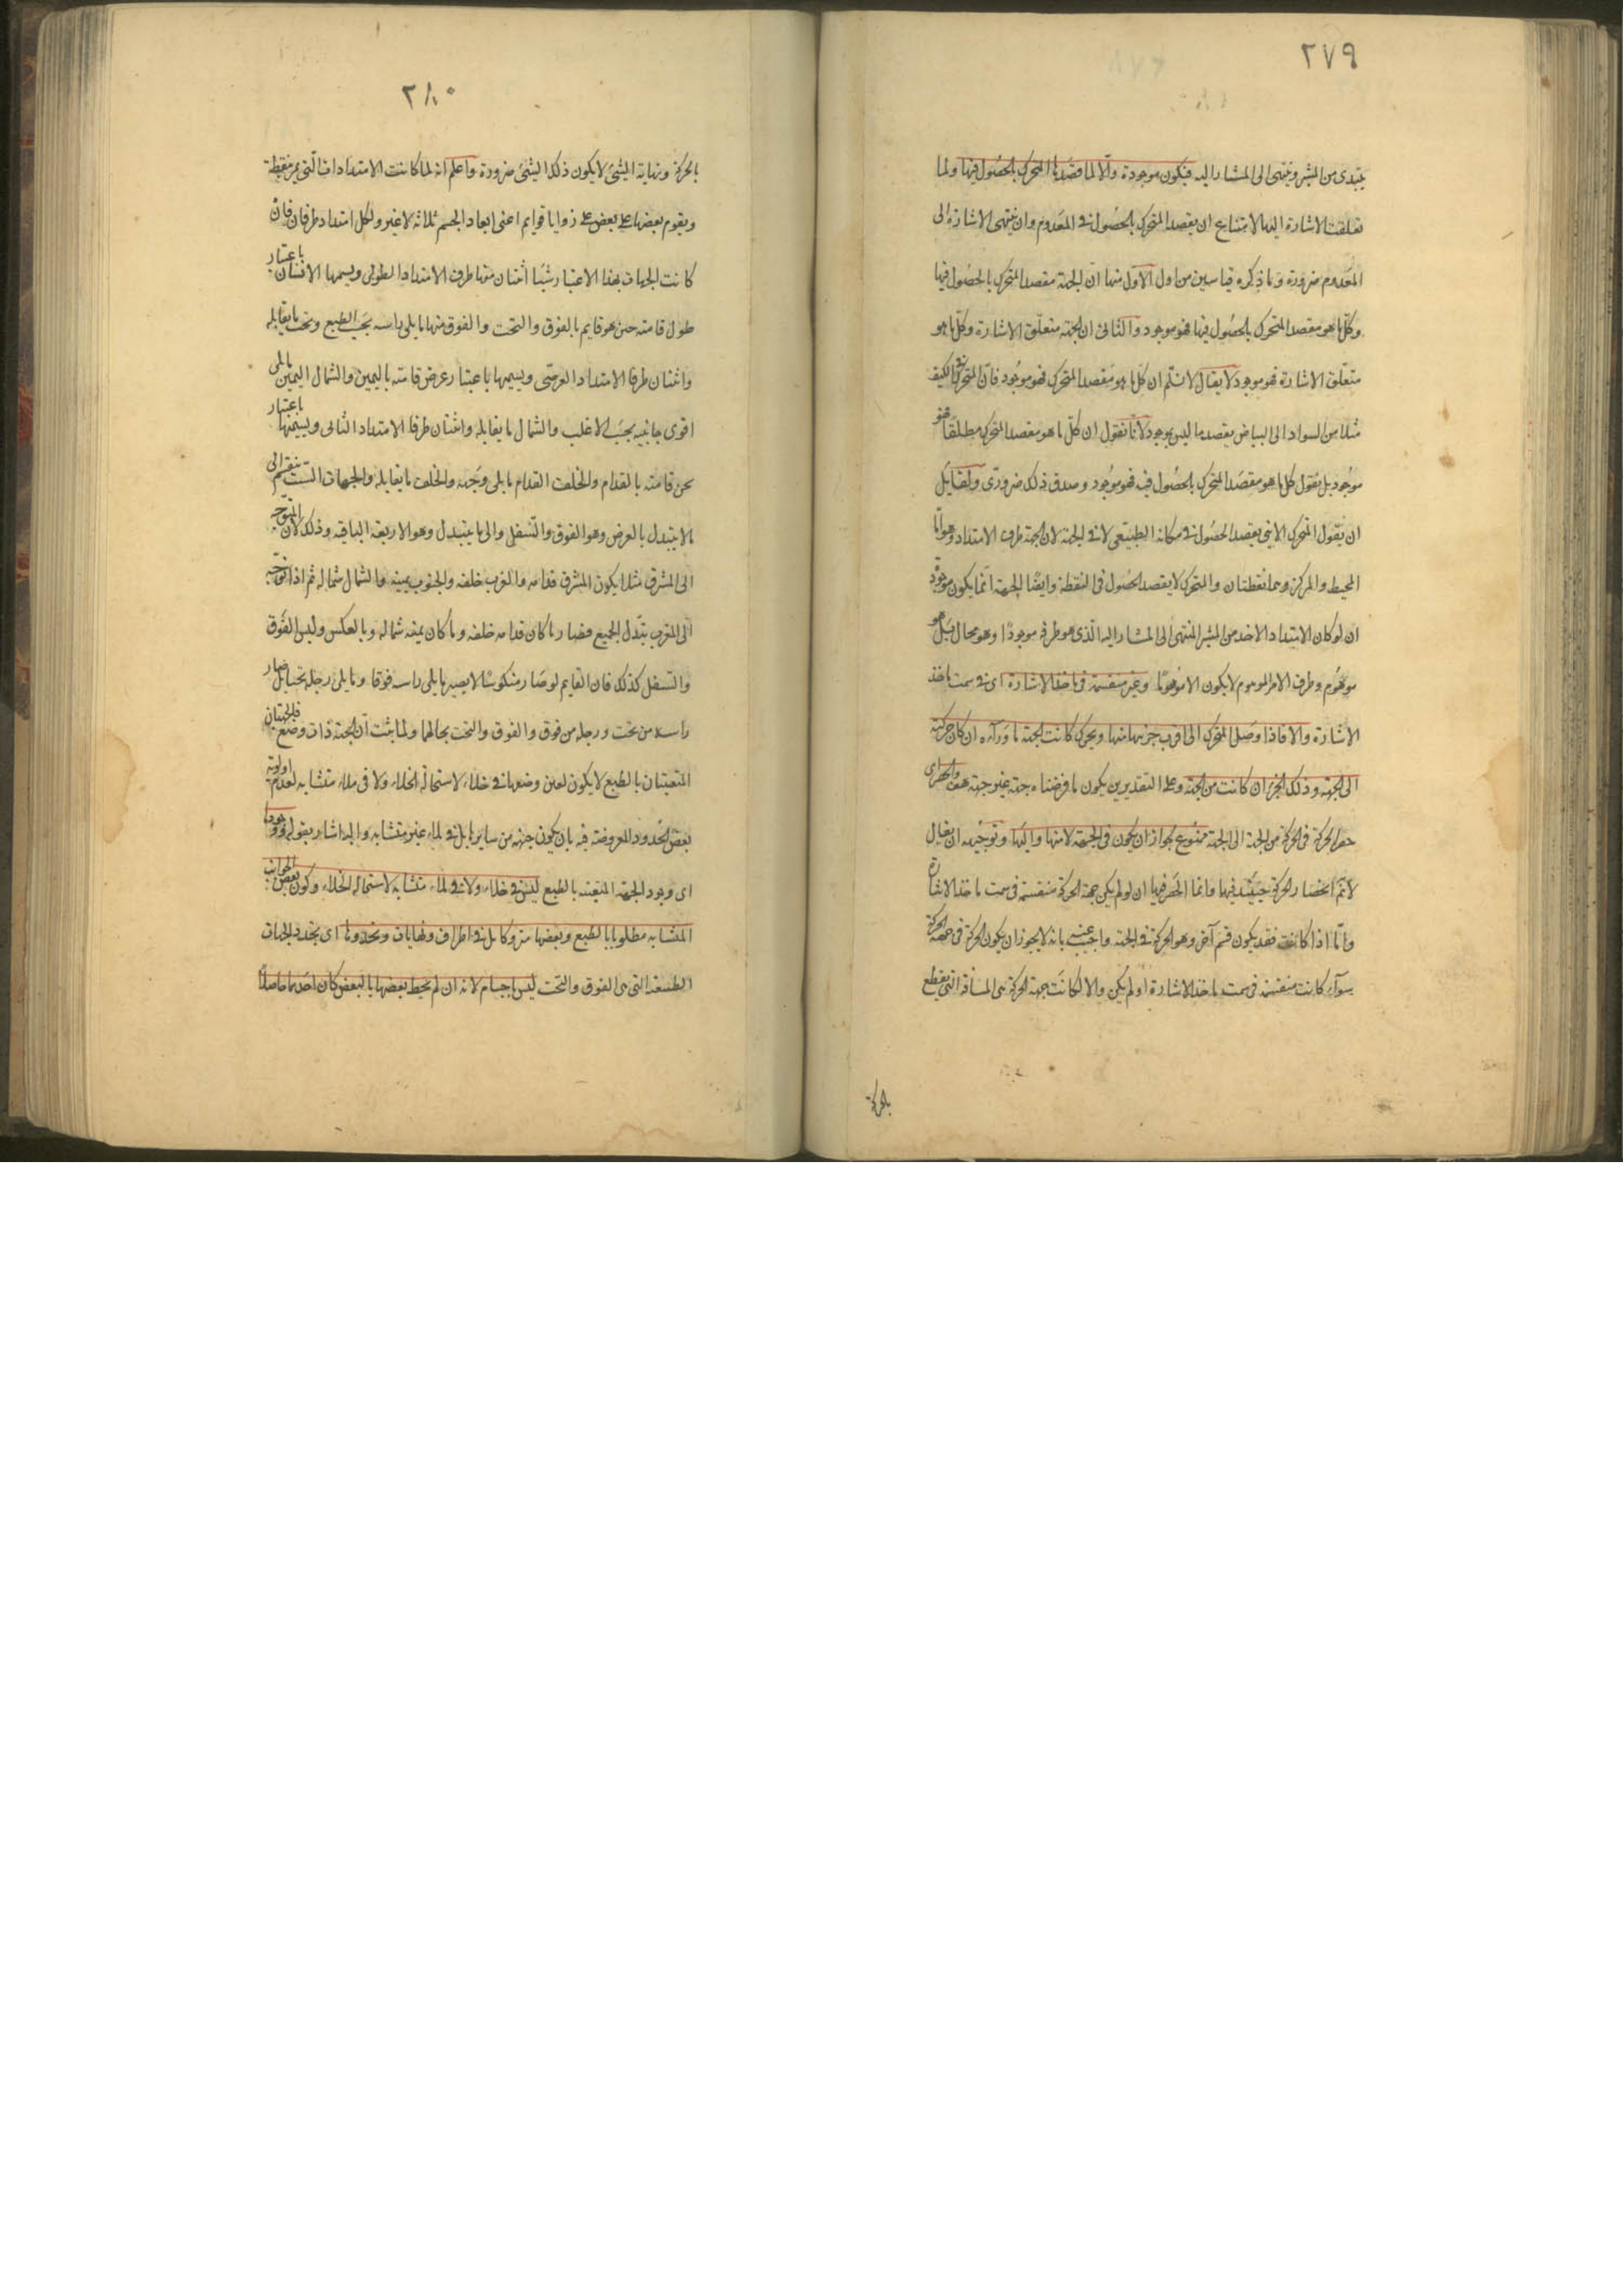 ٢٧٩
يبتدى من المشير وينتهى الى المشار اليه فيكون موجودة والا لما قصدها المتحرك بالحصول فيها ولما
تعلقت الاشارة اليها لامتناع ان يقصد المتحرك بالحصول فى المعدوم وان ينتهى الاشارة الى
المعدوم ضرورة وما ذكره قياسين من اول الاول منها ان الجهة مقصد المتحرك بالحصول فيها
وكل ما هو مقصد المتحرك بالحصول فيها فهو موجود والثانى ان الجهة متعلق الاشارة وكل ما هو
متعلق الاشارة فهو موجود لا يقال لا نسلم ان كل ما هو مقصد المتحرك فهو موجود فان المتحرك فى الكيف
مثلا من السواد الى البياض يقصد ما ليس بموجود لانا نقول ان كل ما هو مقصد المتحرك مطلقا فهو
موجود بل نقول كل ما هو مقصد المتحرك بالحصول فيه فهو موجود وصدق ذلك ضرورى ولقايل
ان يقول المتحرك الاينى يقصد الحصول فى مكانه الطبيعى لا فى الجهة لان الجهة طرف الامتداد وهو اما
المحيط والمركز وهما نقطتان والمتحرك لا يقصد الحصول فى النقطة وايضا الجهة انما يكون موجودة
ان لو كان الامتداد الاخذ من المشير المنتهى الى المشار اليه الذى هو طرفه موجودا وهو محال بل هو
موهوم وطرف الامر الموهوم لا يكون الا موهوما وغير منقسمة فى ماخذ الاشارة اى فى سمت ماخذ
الاشارة والا فاذا وصل المتحرك الى اقرب جزئيها منها ويحرك كانت الجهة ما ورآءه ان كان حركته
الى الجهة وذلك الجزء ان كانت من الجهة وعلى التقديرين يكون ما فرضناه جهة غير جهة هف والحصر اى
حصر الحركة فى الحركة من الجهة الى الجهة ممنوع لجواز ان يكون فى الجهة لا منها واليها وتوجيهه ان يقال
لانم انحصار الحركة حينئذ فيها وانما الحصر فيها ان لو لم يكن جهة الحركة منقسمة فى سمت ماخذ الاشارة
واما اذا كانت فقد يكون قسم آخر وهو الحركة فى الجهة واجيب عنه بانه لا يجوز ان يكون الحركة فى جهة الحركة
سوآء كانت منقسمة فى سمت ماخذ الاشارة او لم يكن والا لكانت جهة الحركة هى المسافة التى يقطع
بالحركة
٢٨٠
بالحركة ونهاية الشئ لا يكون ذلك الشئ ضرورة واعلم انه لما كانت الامتدادات التى يمر بنقطة
ويقوم بعضها على بعض على زوايا قوايم اعنى ابعاد الجسم ثلاثة لا غير ولكل امتداد طرفان فان
كانت الجهات بهذا الاعتبار ستا اثنان منها طرفا الامتداد الطولى ويسميها الانسان باعتبار
طول قامته حين هو قايم بالفوق والتحت والفوق منها ما يلى راسه بحسب الطبع وتحت ما يقابله
واثنان طرفا الامتداد العرضى ويسميها باعتبار عرض قامته باليمين والشمال اليمين ما يلى
اقوى جانبيه بحسب الاغلب والشمال ما يقابله واثنان طرفا الامتداد الثالى ويسميها باعتبار
ثخن قامته بالقدام والخلف القدام ما يلى وجهه والخلف ما يقابله والجهات الست ينقسم الى
ما لا يتبدل بالعرض وهو الفوق والسفل والى ما يتبدل وهو الاربعة الباقية وذلك لان المتوجه
الى المشرق مثلا يكون المشرق قدامه والمغرب خلفه والجنوب يمينه والشمال شماله ثم اذا توجه
الى المغرب يتبدل الجميع فصار ما كان قدامه خلفه وما كان يمينه شماله وبالعكس وليس الفوق
والسفل كذلك فان القايم لو صار منكوسا لا يصير ما يلى راسه فوقا وما يلى رجله تحتا بل صار
راسه من تحت ورجله من فوق والفوق والتحت بحالهما ولما ثبت ان الجهة ذات وضع فالجهتان
المتعينتان بالطبع لا يكون تعين وضعها فى خلاء لاستحالة الخلاء ولا فى ملاء متشابه لعدم اولوية
بعض الحدود المفروضة فيه بان يكون جهة من ساير ما بل فى ملاء غير متشابه واليه اشار بقوله ووجودها
اى وجود الجهة المتعينة بالطبع ليس فى خلاء ولا فى ملاء متشابه لاستحالة الخلاء وكون بعض الجوانب
المتشابه مطلوبا بالطبع وبعضها متروكا بل فى اطراف ونهايات وتحددها اى تحدد الجهات
الطبيعية التى هى الفوق والتحت ليس باجسام لانه ان لم يحيط بعضها بالبعض كان احدهما حاصلا